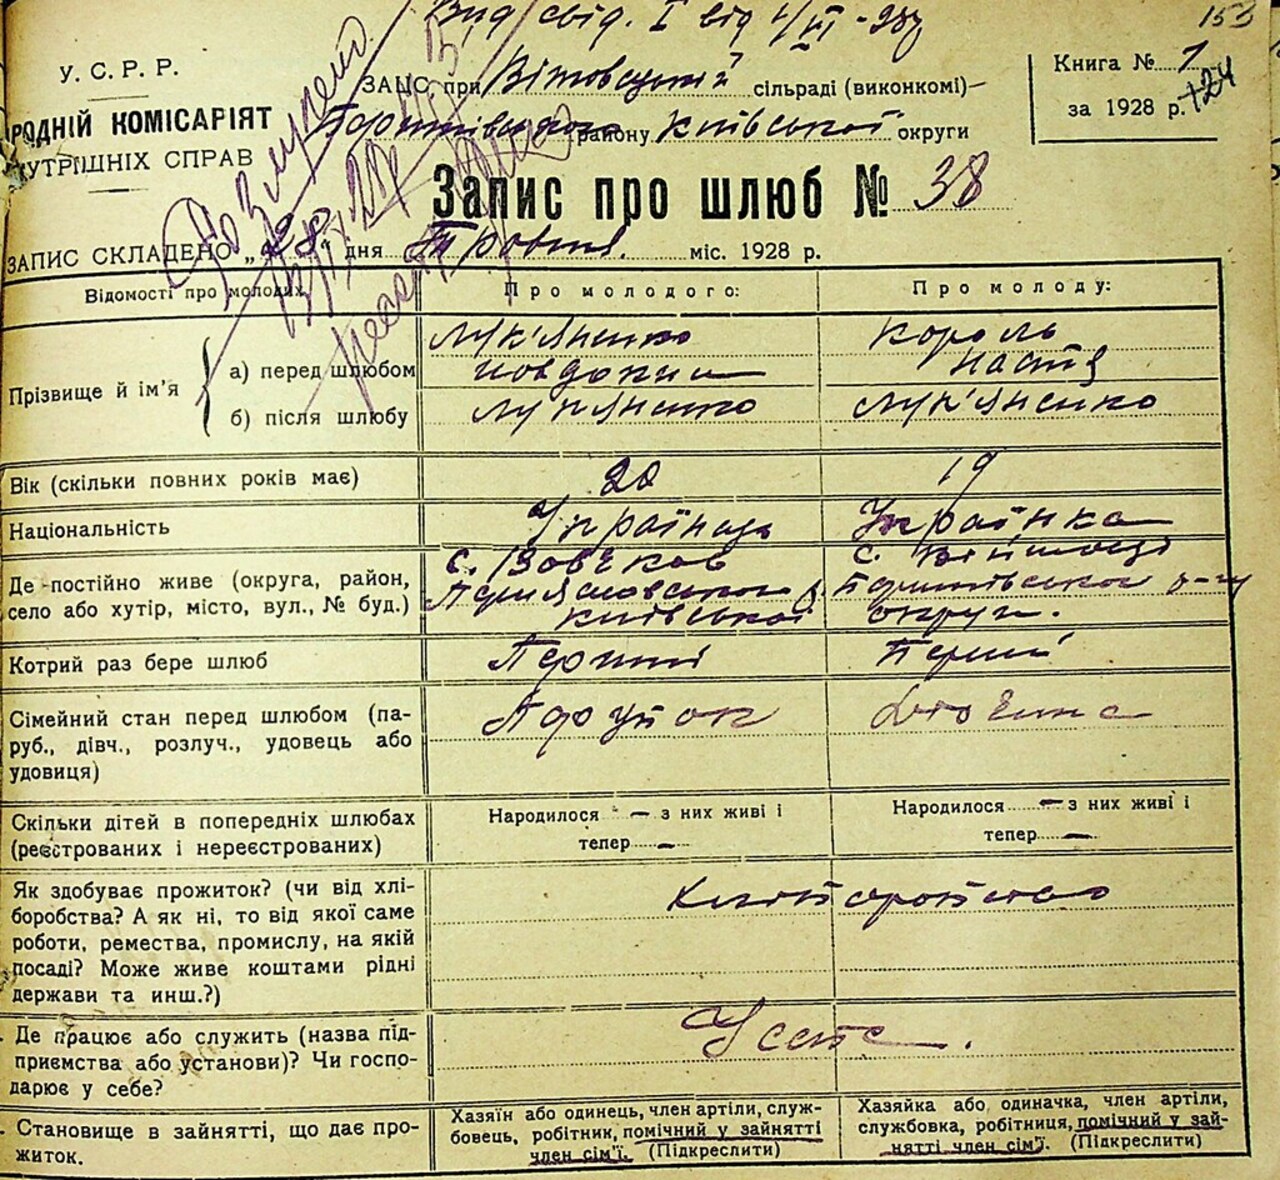 Вид. свід. I від 1/VI - 28р
153
У. С. Р. Р.
РОДНІЙ КОМІСАРІЯТ
УТРІШНІХ СПРАВ
ЗАЦС при Вітовецькій сільраді (виконкомі)
району Київської округи
Книга № 1
за 1928 р.
Запис про шлюб № 38
ЗАПИС СКЛАДЕНО „28" дня Травня міс. 1928 р.
Відомості про молодих
Про молодого:
Про молоду:
Прізвище й ім'я
а) перед шлюбом
Лук'яненко
Король
Настя
б) після шлюбу
Лук'яненко
Лук'яненко
Вік (скільки повних років має)
20
19
Національність
Українець
Українка
Де постійно живе (округа, район,
село або хутір, місто, вул., № буд.)
с.
Київської
с.
округи.
Котрий раз бере шлюб
Перший
Перший
Сімейний стан перед шлюбом (па-
руб., дівч., розлуч., удовець або
удовиця)
Парубок
Дівчина
Скільки дітей в попередніх шлюбах
(реєстрованих і нереєстрованих)
Народилося - з них живі і
тепер -
Народилося - з них живі і
тепер -
Як здобуває прожиток? (чи від хлі-
боробства? А як ні, то від якої саме
роботи, ремества, промислу, на якій
посаді? Може живе коштами рідні
держави та инш.?)
Хліборобство
Де працює або служить (назва під-
приємства або установи)? Чи госпо-
дарює у себе?
У себе.
Становище в зайнятті, що дає про-
житок.
Хазяїн або одинець, член артіли, служ-
бовець, робітник, помічний у зайнятті
член сім'ї. (Підкреслити)
Хазяйка або одиначка, член артіли,
службовка, робітниця, помічний у зай-
нятті член сім'ї. (Підкреслити)